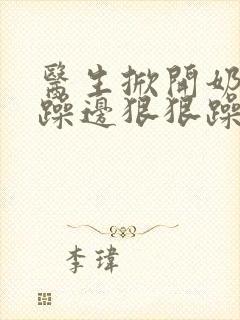 醫生掀開奶
躁邊狠狠躁
李瑋